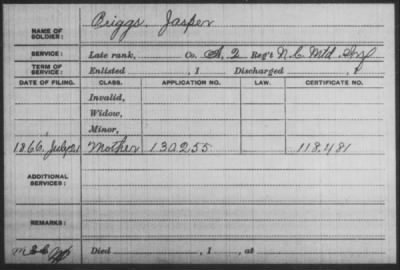 NAME OF SOLDIER: Briggs, Jasper
SERVICE: Late rank, Co. A, 2 Reg't N.C. Mtd. Inf
TERM OF SERVICE: Enlisted , 1 Discharged , 1
DATE OF FILING. CLASS. APPLICATION NO. LAW. CERTIFICATE NO.
Invalid,
Widow,
Minor,
1866, July 21 Mother 130255 118481
ADDITIONAL SERVICES:
REMARKS:
Died , 1 , at